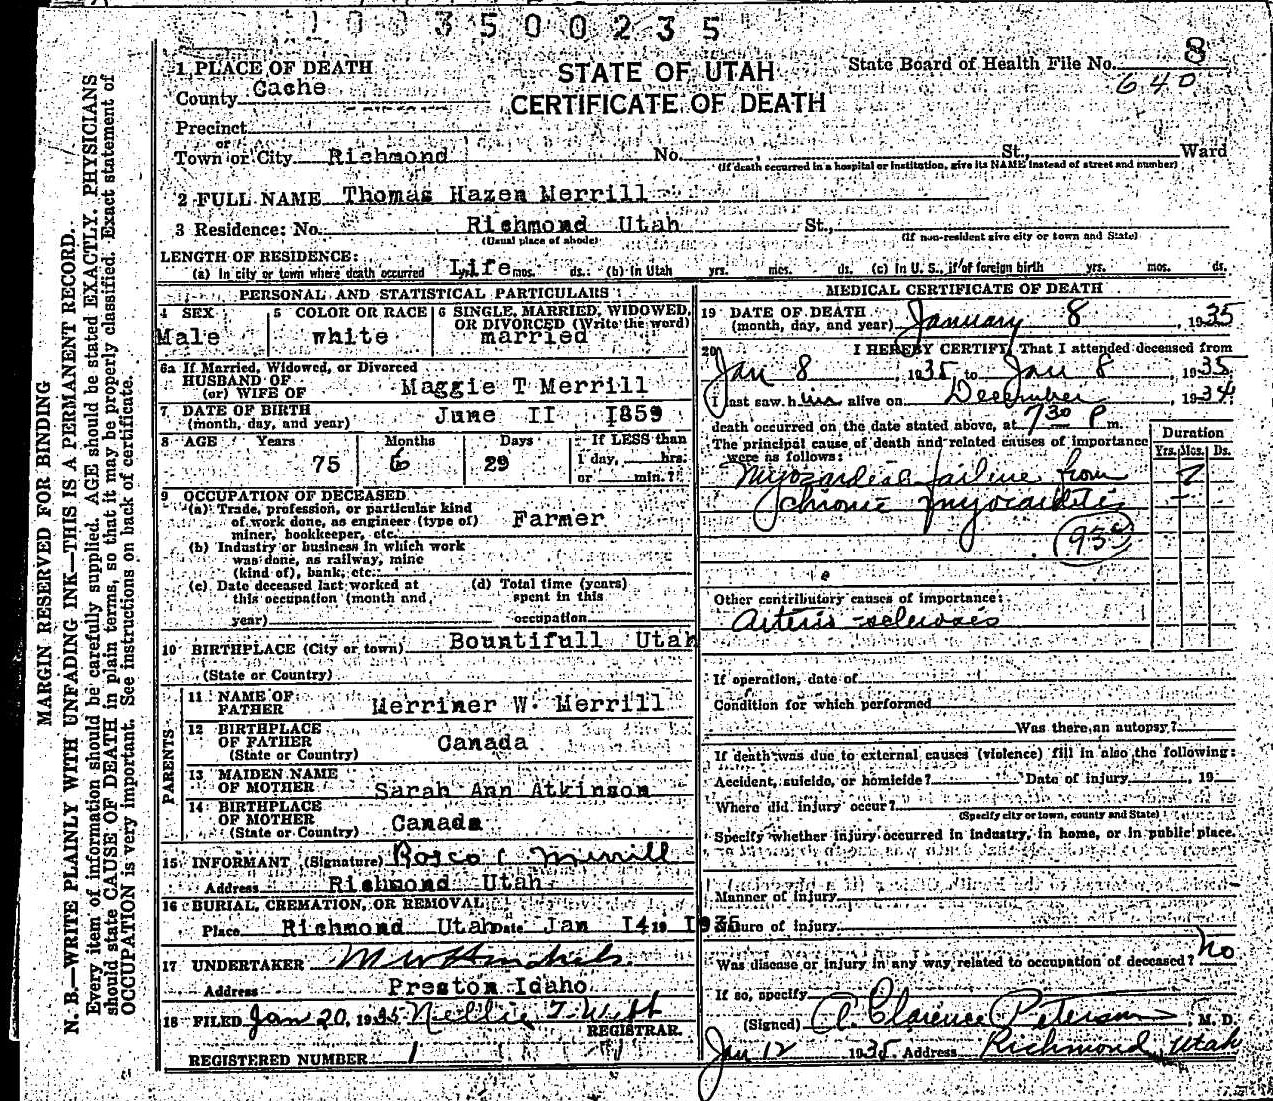 1003500235
1 PLACE OF DEATH
STATE OF UTAH
State Board of Health File No. 8
County Cache
CERTIFICATE OF DEATH
640
Precinct
or
Town or City Richmond No. , St., Ward
(If death occurred in a hospital or institution, give its NAME instead of street and number)
2 FULL NAME Thomas Hazen Merrill
3 Residence: No. Richmond Utah St.,
(Usual place of abode) (If non-resident give city or town and State)
LENGTH OF RESIDENCE:
(a) In city or town where death occurred Life mos. ds. (b) In Utah yrs. mos. ds. (c) In U. S., if of foreign birth yrs. mos. ds.
PERSONAL AND STATISTICAL PARTICULARS
4 SEX
Male
5 COLOR OR RACE
white
6 SINGLE, MARRIED, WIDOWED,
OR DIVORCED (Write the word)
married
6a If Married, Widowed, or Divorced
HUSBAND OF
(or) WIFE OF Maggie T Merrill
7 DATE OF BIRTH
(month, day, and year) June II I859
8 AGE Years Months Days If LESS than
75 6 29 1 day, hrs.
or min.?
9 OCCUPATION OF DECEASED
(a) Trade, profession, or particular kind
of work done, as engineer (type of)
miner, bookkeeper, etc. Farmer
(b) Industry or business in which work
was done, as railway, mine
(kind of), bank, etc.
(c) Date deceased last worked at
this occupation (month and
year)
(d) Total time (years)
spent in this
occupation
10 BIRTHPLACE (City or town) Bountifull Utah
(State or Country)
PARENTS
11 NAME OF
FATHER Merriner W. Merrill
12 BIRTHPLACE
OF FATHER Canada
(State or Country)
13 MAIDEN NAME
OF MOTHER Sarah Ann Atkinson
14 BIRTHPLACE
OF MOTHER Canada
(State or Country)
15 INFORMANT (Signature) Rosco C Merrill
Address Richmond Utah
16 BURIAL, CREMATION, OR REMOVAL
Place Richmond Utah Date Jan I4 19 I935
17 UNDERTAKER
Address Preston Idaho
18 FILED Jan 20, 1935 Nellie T. Witt
REGISTRAR.
REGISTERED NUMBER 1
MEDICAL CERTIFICATE OF DEATH
19 DATE OF DEATH
(month, day, and year) January 8, 1935
20 I HEREBY CERTIFY, That I attended deceased from
Jan 8, 1935 to Jan 8, 1935
I last saw him alive on December, 1934
death occurred on the date stated above, at 730 P m.
The principal cause of death and related causes of importance
were as follows:
Duration
Yrs. Mos. Ds.
Myocardial failure from ?
chronic myocarditis
Other contributory causes of importance:
Arterio-sclerosis
If operation, date of
Condition for which performed
Was there an autopsy?
If death was due to external causes (violence) fill in also the following:
Accident, suicide, or homicide? Date of injury , 19
Where did injury occur?
(Specify city or town, county and State)
Specify whether injury occurred in industry, in home, or in public place.
Manner of injury
Nature of injury
Was disease or injury in any way related to occupation of deceased? No
If so, specify
(Signed) A. Clarence Peterson M. D.
Jan 12 1935 Address Richmond, Utah
MARGIN RESERVED FOR BINDING
N. B.—WRITE PLAINLY WITH UNFADING INK—THIS IS A PERMANENT RECORD.
Every item of information should be carefully supplied. AGE should be stated EXACTLY. PHYSICIANS
should state CAUSE OF DEATH in plain terms, so that it may be properly classified. Exact statement of
OCCUPATION is very important. See instructions on back of certificate.